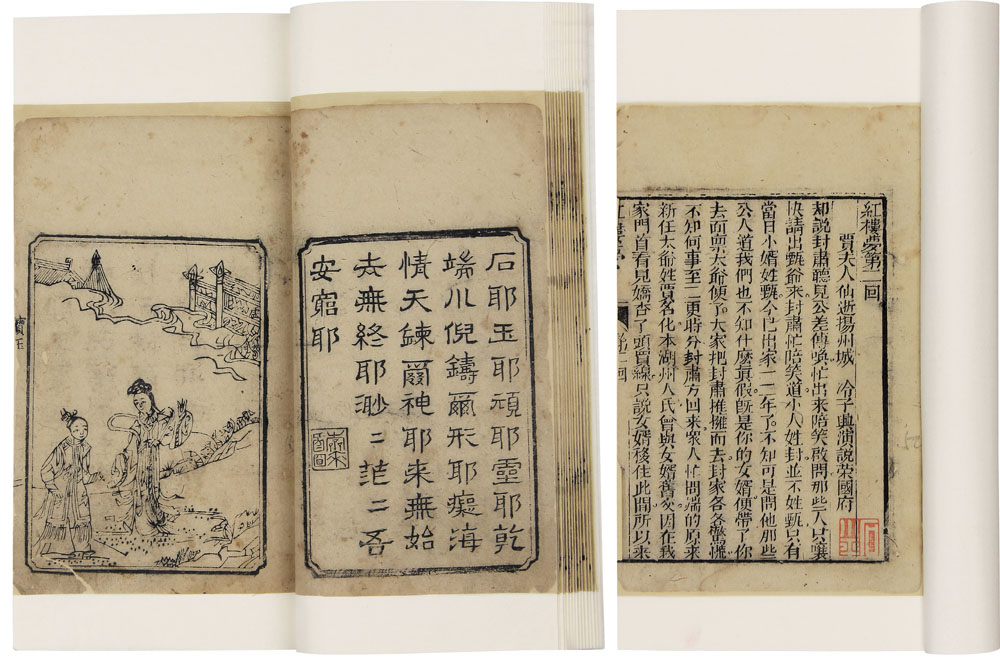 石耶玉耶頑耶靈耶乾
端巛倪鑄爾形耶癡海
情天鍊爾神耶来無始
去無終耶渺二茫二吾
安窮耶
紅樓夢第二回
賈夫人仙逝揚州城　冷子興演說榮國府
却說封肅聽見公差傳喚忙出來陪笑啟問那些人只嚷
快請出甄爺來封肅忙陪笑道小人姓封並不姓甄只有
當日小婿姓甄今已出家一二年了。不知可是問他那些
公人道我們也不知什麼真假既是你的女婿便帶了你
去面稟太爺便了。大家把封肅推擁而去封家各各驚慌
不知何事至二更時分封肅方回來眾人忙問端的原來
新任太爺姓賈名化本湖州人氏曾與女婿舊交因在我
家門首看見嬌杏丫頭買線只說女婿移住此間所以來